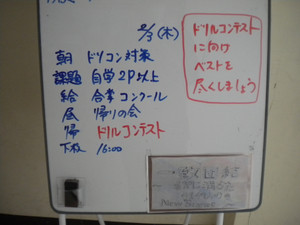 2/3(木)
朝 ドリコン対策
課題 自学2P以上
給 合掌コンクール
昼 帰りの会
帰 ドリルコンテスト
下校 16:00
ドリルコンテスト
に向け
ベストを
尽くしましょう